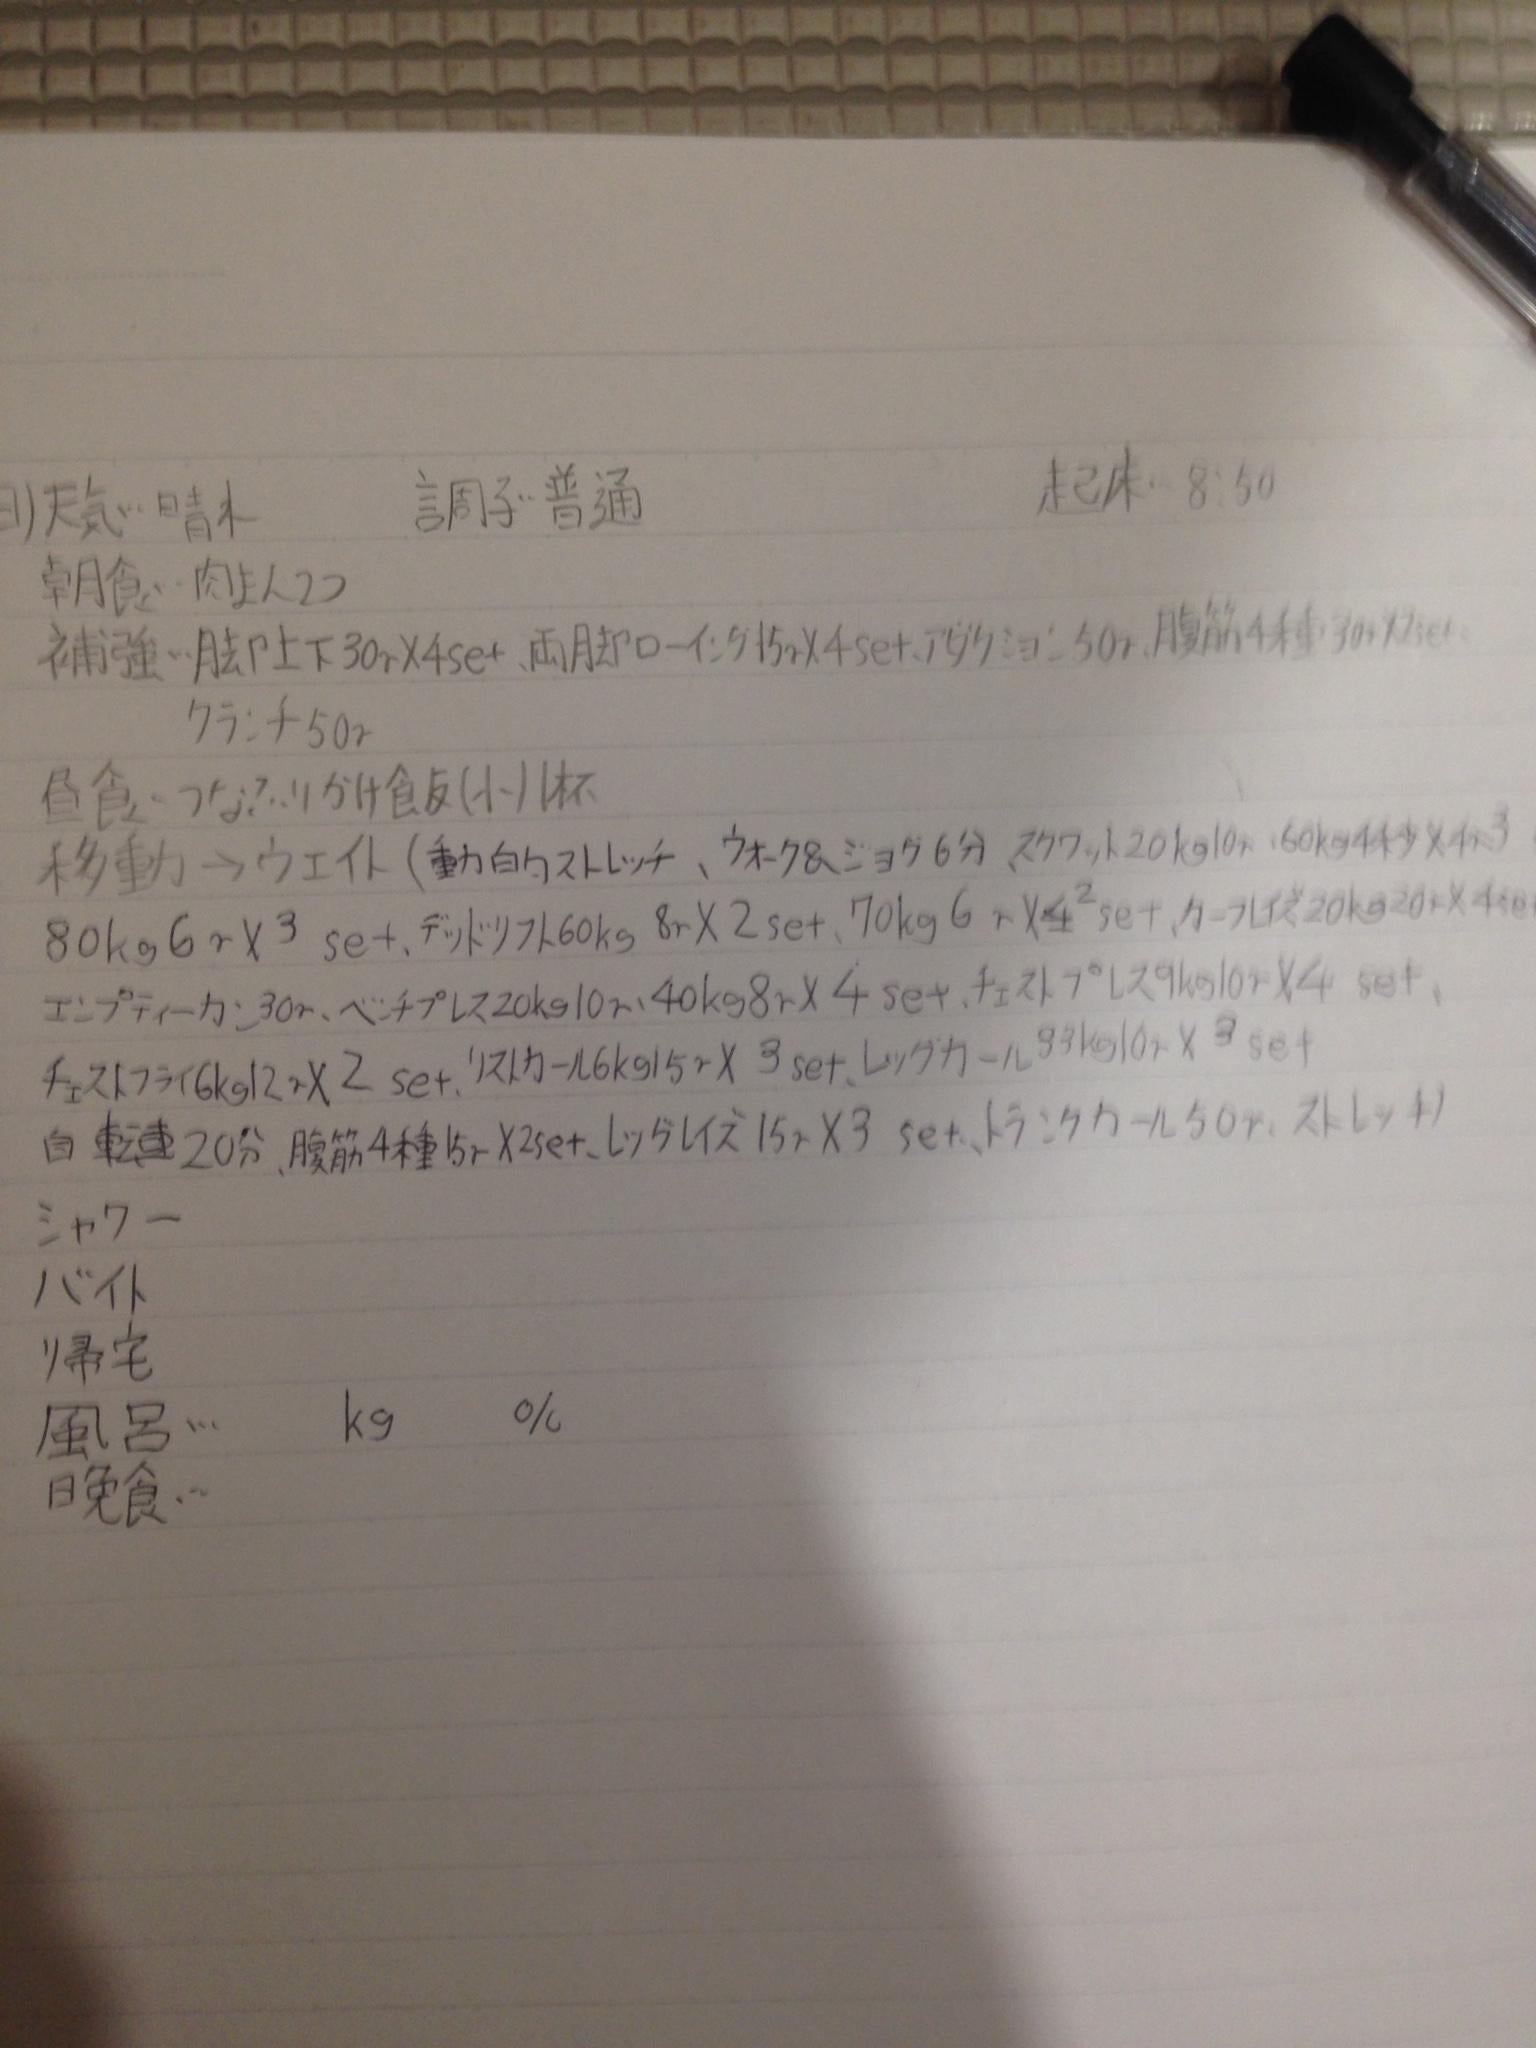 日)天気…晴れ 調子…普通 起床…8:50
朝食…肉まん2つ
補強…脚上下30r×4set、両脚ローイング15r×4set、アダクション50r、腹筋4種30r×2set、
クランチ50r
昼食…つなふりかけ飯(小)1杯
移動→ウェイト(動的ストレッチ、ウォーク&ジョグ6分、スクワット20kg10r、60kg4秒×4r3
80kg6r×3 set、デッドリフト60kg 8r×2set、70kg6r×2set、カーフレイズ20kg20r×4set
エンプティーカン30r、ベンチプレス20kg10r、40kg8r×4set、チェストプレス9kg10r×4 set、
チェストフライ6kg12r×2 set、リストカール6kg15r×3set、レッグカール33kg10r×3set
自転車20分、腹筋4種15r×2set、レッグレイズ15r×3 set、トランクカール50r、ストレッチ)
シャワー
バイト
帰宅
風呂… kg %
晩食…